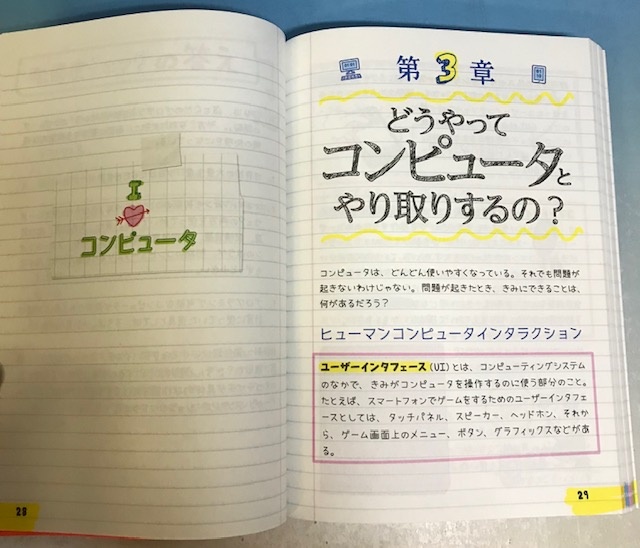 I
コンピュータ
28
第3章
どうやって
コンピュータと
やり取りするの？
コンピュータは、どんどん使いやすくなっている。それでも問題が
起きないわけじゃない。問題が起きたとき、きみにできることは、
何があるだろう？
ヒューマンコンピュータインタラクション
ユーザーインタフェース（UI）とは、コンピューティングシステム
のなかで、きみがコンピュータを操作するのに使う部分のこと。
たとえば、スマートフォンでゲームをするためのユーザーインタフェ
ースとしては、タッチパネル、スピーカー、ヘッドホン、それか
ら、ゲーム画面上のメニュー、ボタン、グラフィックスなどがあ
る。
29